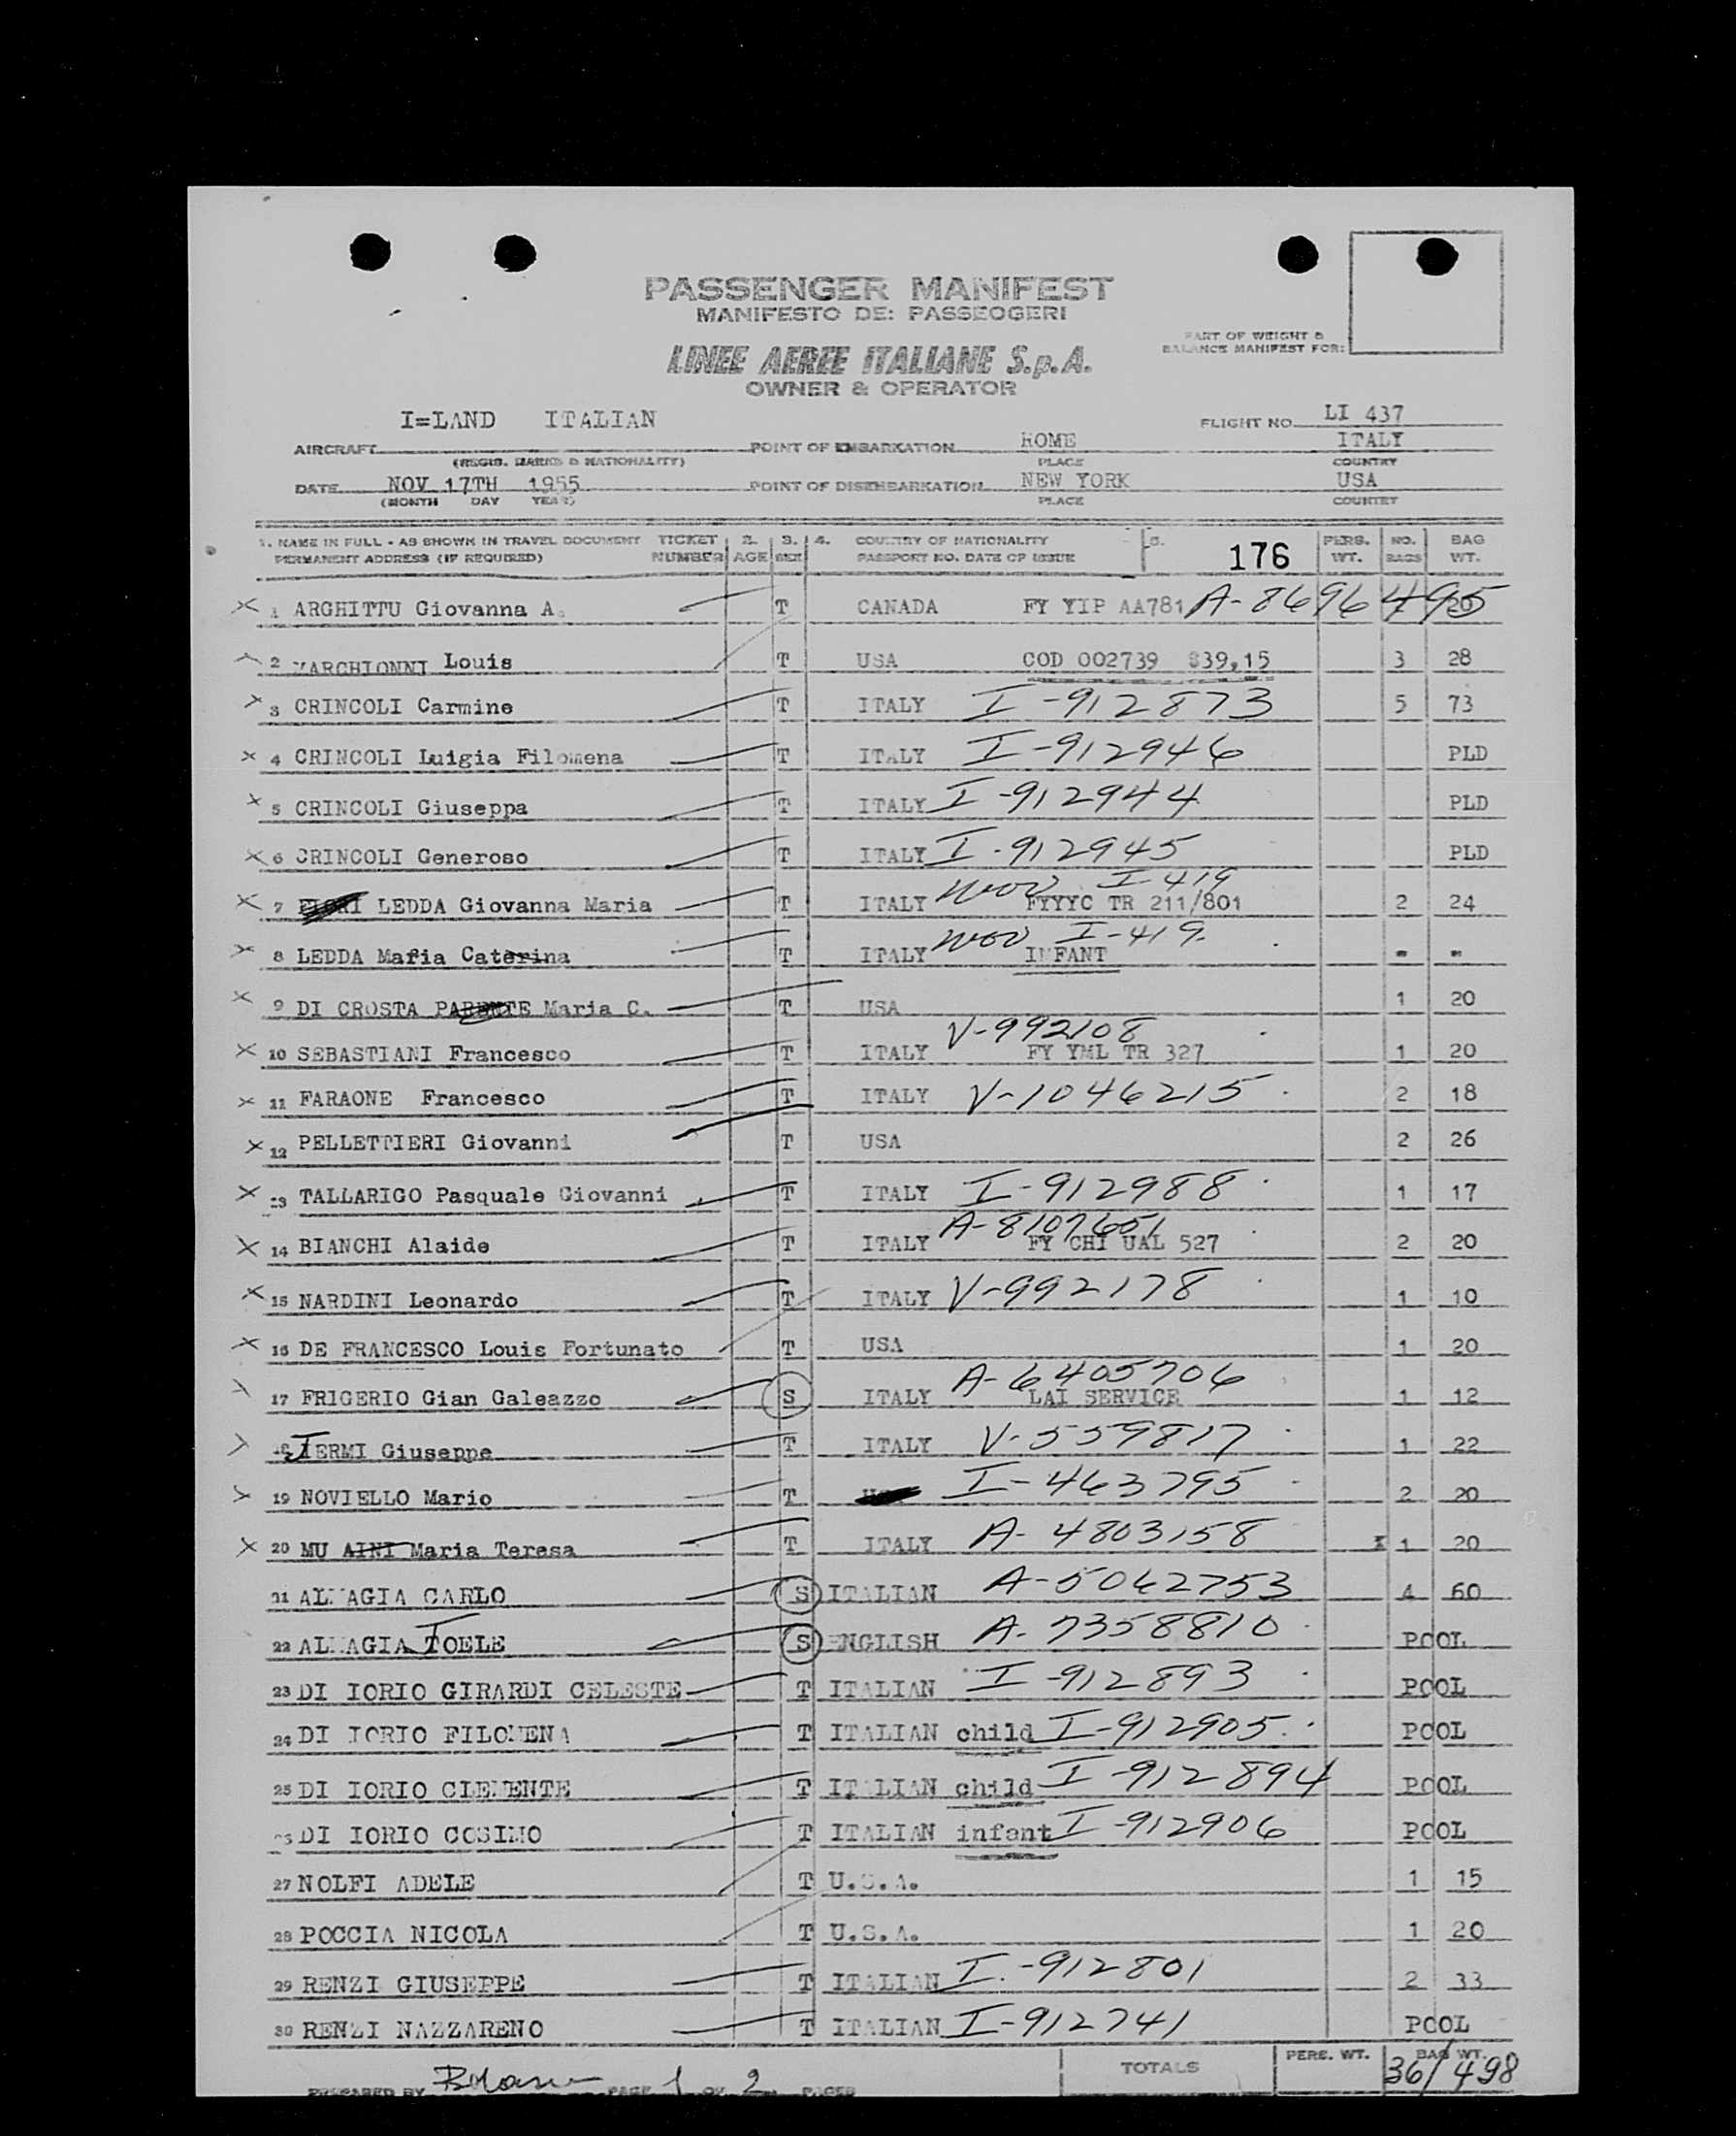 PASSENGER MANIFEST
MANIFESTO DE: PASSEOGERI
PART OF WEIGHT &
BALANCE MANIFEST FOR:
LINEE AEREE ITALIANE S.p.A.
OWNER & OPERATOR
I=LAND ITALIAN FLIGHT NO. LI 437
AIRCRAFT POINT OF EMBARKATION ROME ITALY
(REGIS. MARKS & NATIONALITY) PLACE COUNTRY
DATE NOV 17TH 1955 POINT OF DISEMBARKATION NEW YORK USA
(MONTH DAY YEAR) PLACE COUNTRY
1. NAME IN FULL - AS SHOWN IN TRAVEL DOCUMENT TICKET 2. 3. 4. COUNTRY OF NATIONALITY 5. 176 PERS. NO. BAG
PERMANENT ADDRESS (IF REQUIRED) NUMBER AGE SEX PASSPORT NO. DATE OF ISSUE WT. BAGS WT.
1 ARGHITTU Giovanna A. T CANADA FY YIP AA781 A-8696495 20
2 MARCHIONNI Louis T USA COD 002739 $39,15 3 28
3 CRINCOLI Carmine T ITALY I-912873 5 73
4 CRINCOLI Luigia Filomena T ITALY I-912946 PLD
5 CRINCOLI Giuseppa T ITALY I-912944 PLD
6 CRINCOLI Generoso T ITALY I-912945 PLD
7 LEDDA Giovanna Maria T ITALY I-419 FYYYC TR 211/801 2 24
8 LEDDA Maria Caterina T ITALY I-419 INFANT - -
9 DI CROSTA PARENTE Maria C. T USA 1 20
10 SEBASTIANI Francesco T ITALY V-992108 FY YML TR 327 1 20
11 FARAONE Francesco T ITALY V-1046215 2 18
12 PELLETTIERI Giovanni T USA 2 26
13 TALLARIGO Pasquale Giovanni T ITALY I-912988 1 17
14 BIANCHI Alaide T ITALY A-8107651 FY CHI UAL 527 2 20
15 NARDINI Leonardo T ITALY V-992178 1 10
16 DE FRANCESCO Louis Fortunato T USA 1 20
17 FRIGERIO Gian Galeazzo S ITALY A-6405706 LAI SERVICE 1 12
18 TERMI Giuseppe T ITALY V-559817 1 22
19 NOVIELLO Mario T I-463795 2 20
20 MU AINI Maria Teresa T ITALY A-4803158 x 1 20
21 ALMAGIA CARLO S ITALIAN A-5042753 4 60
22 ALMAGIA TOELE S ENGLISH A-7358810 POOL
23 DI IORIO GIRARDI CELESTE T ITALIAN I-912893 POOL
24 DI IORIO FILOMENA T ITALIAN child I-912905 POOL
25 DI IORIO CLEMENTE T ITALIAN child I-912894 POOL
26 DI IORIO COSIMO T ITALIAN infant I-912906 POOL
27 NOLFI ADELE T U.S.A. 1 15
28 POCCIA NICOLA T U.S.A. 1 20
29 RENZI GIUSEPPE T ITALIAN I-912801 2 33
30 RENZI NAZZARENO T ITALIAN I-912741 POOL
TOTALS PERS. WT. BAG WT.
36/498
PREPARED BY PAGE 1 OF 2 PAGES